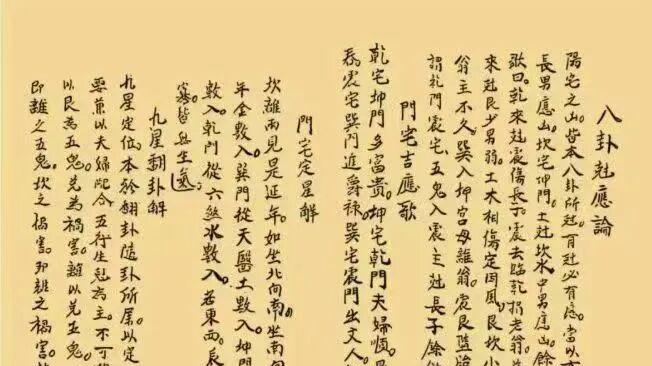 八卦尅應論
陽宅之山皆本八卦所尅。有尅必有應。當以
長男應山。坎宅坤門。土尅坎水中男應山。餘
歌曰。乾來尅震傷長子。震去臨乾損老翁。
來尅艮少男弱。土木相傷定因風。艮坎小
翁主不久。巽入坤宮母離翁。震艮
謂乾門震宅五鬼入震主尅長子餘
門宅吉應歌
乾宅坤門多富貴。坤宅乾門夫婦順。
為震宅巽門進爵祿。巽宅震門出文人
門宅定星解
坎離兩見是延年。如坐北向南。坐南
年金數入。巽門從天醫土數入。坤門
數入。乾門從六煞水數入。若東西。
寡皆無生氣。
九星翻卦解
九星定位。本於翻卦隨卦所屬以定
要兼以夫婦配合五行生尅為主。不可
以艮為五鬼。兌為禍害。離以兌五鬼。
即離之五鬼。坎之禍害。即離之禍害。